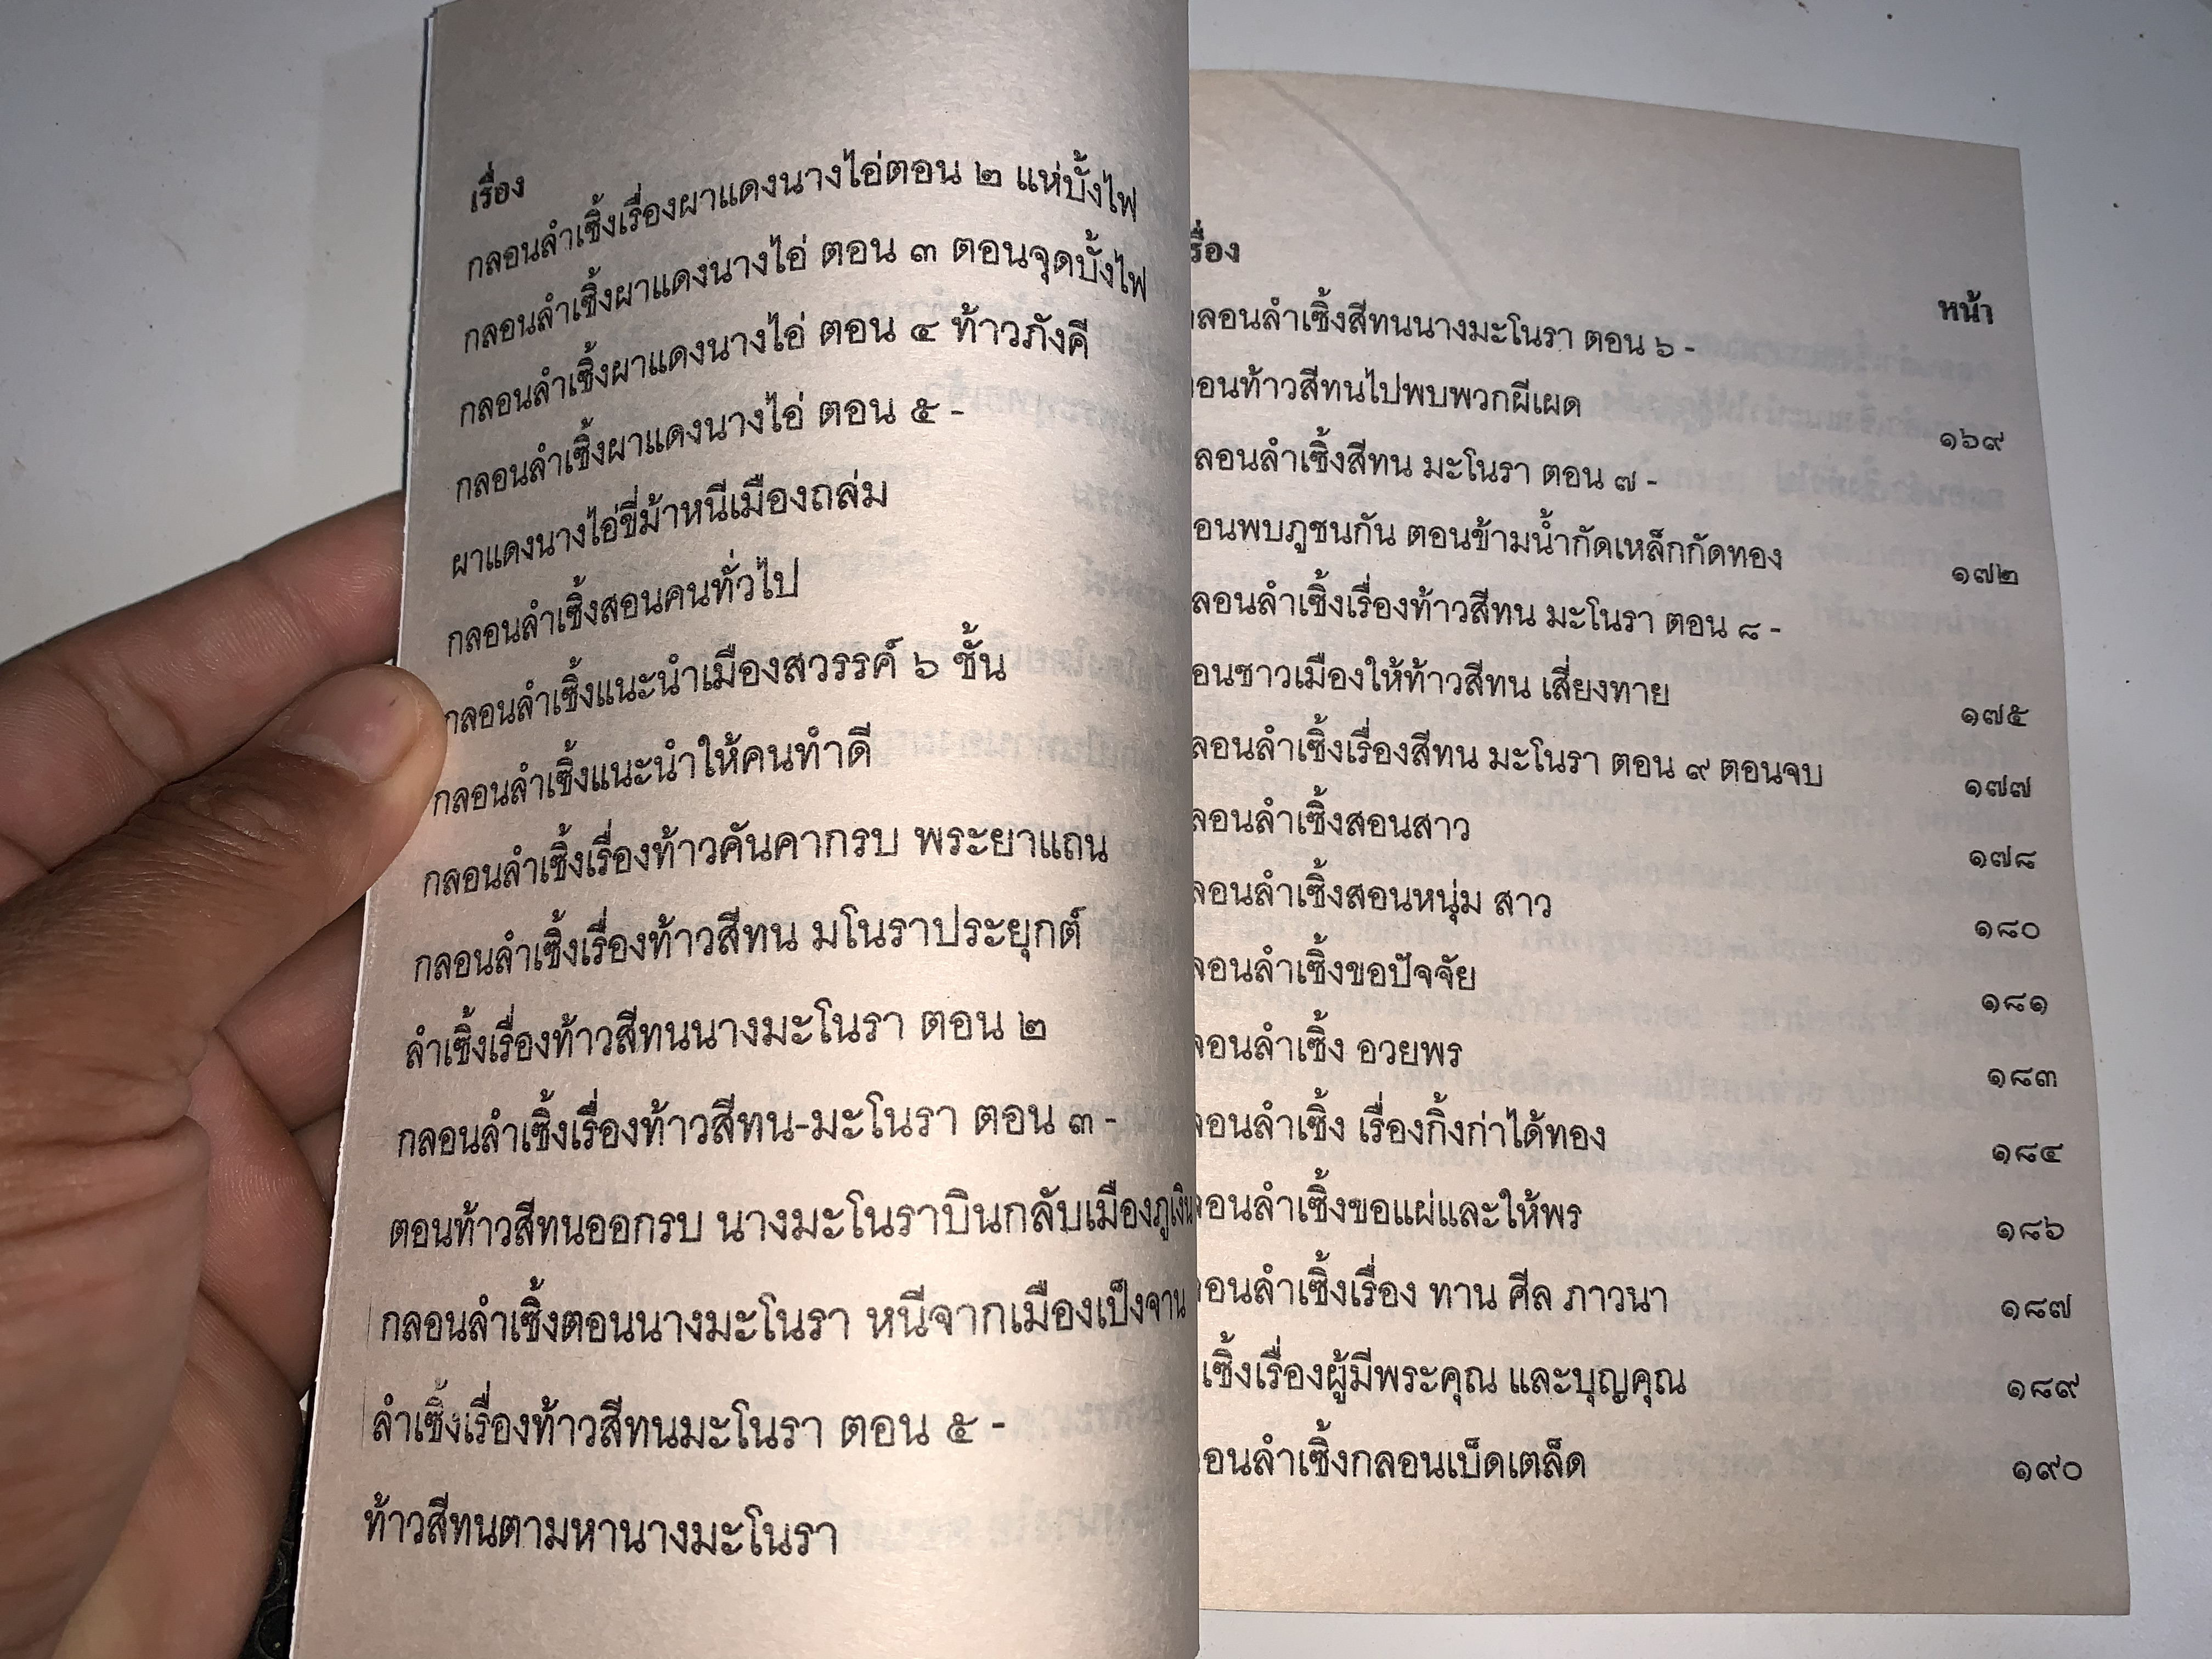 เรื่อง
กลอนลำเซิ้งเรื่องผาแดงนางไอ่ตอน ๒ แห่บั้งไฟ
กลอนลำเซิ้งผาแดงนางไอ่ ตอน ๓ ตอนจุดบั้งไฟ
กลอนลำเซิ้งผาแดงนางไอ่ ตอน ๔ ท้าวภังคี
กลอนลำเซิ้งผาแดงนางไอ่ ตอน ๕ -
ผาแดงนางไอ่ขี่ม้าหนีเมืองถล่ม
กลอนลำเซิ้งสอนคนทั่วไป
กลอนลำเซิ้งแนะนำเมืองสวรรค์ ๖ ชั้น
กลอนลำเซิ้งแนะนำให้คนทำดี
กลอนลำเซิ้งเรื่องท้าวคันคากรบ พระยาแถน
กลอนลำเซิ้งเรื่องท้าวสีทน มโนราประยุกต์
ลำเซิ้งเรื่องท้าวสีทนนางมะโนรา ตอน ๒
กลอนลำเซิ้งเรื่องท้าวสีทน-มะโนรา ตอน ๓ -
ตอนท้าวสีทนออกรบ นางมะโนราบินกลับเมืองภูเงิน
กลอนลำเซิ้งตอนนางมะโนรา หนีจากเมืองเป็งจาน
ลำเซิ้งเรื่องท้าวสีทนมะโนรา ตอน ๕ -
ท้าวสีทนตามหานางมะโนรา
รื่อง
หน้า
ลอนลำเซิ้งสีทนนางมะโนรา ตอน ๖ -
อนท้าวสีทนไปพบพวกผีเผด ๑๖๙
ลอนลำเซิ้งสีทน มะโนรา ตอน ๗ -
อนพบภูชนกัน ตอนข้ามน้ำกัดเหล็กกัดทอง ๑๗๒
ลอนลำเซิ้งเรื่องท้าวสีทน มะโนรา ตอน ๘ -
อนชาวเมืองให้ท้าวสีทน เสี่ยงทาย ๑๗๕
ลอนลำเซิ้งเรื่องสีทน มะโนรา ตอน ๙ ตอนจบ ๑๗๗
ลอนลำเซิ้งสอนสาว ๑๗๘
ลอนลำเซิ้งสอนหนุ่ม สาว ๑๘๐
ลอนลำเซิ้งขอปัจจัย ๑๘๑
ลอนลำเซิ้ง อวยพร ๑๘๓
ลอนลำเซิ้ง เรื่องกิ้งก่าได้ทอง ๑๘๔
ลอนลำเซิ้งขอแผ่และให้พร ๑๘๖
อนลำเซิ้งเรื่อง ทาน ศีล ภาวนา ๑๘๗
เซิ้งเรื่องผู้มีพระคุณ และบุญคุณ ๑๘๙
อนลำเซิ้งกลอนเบ็ดเตล็ด ๑๙๐